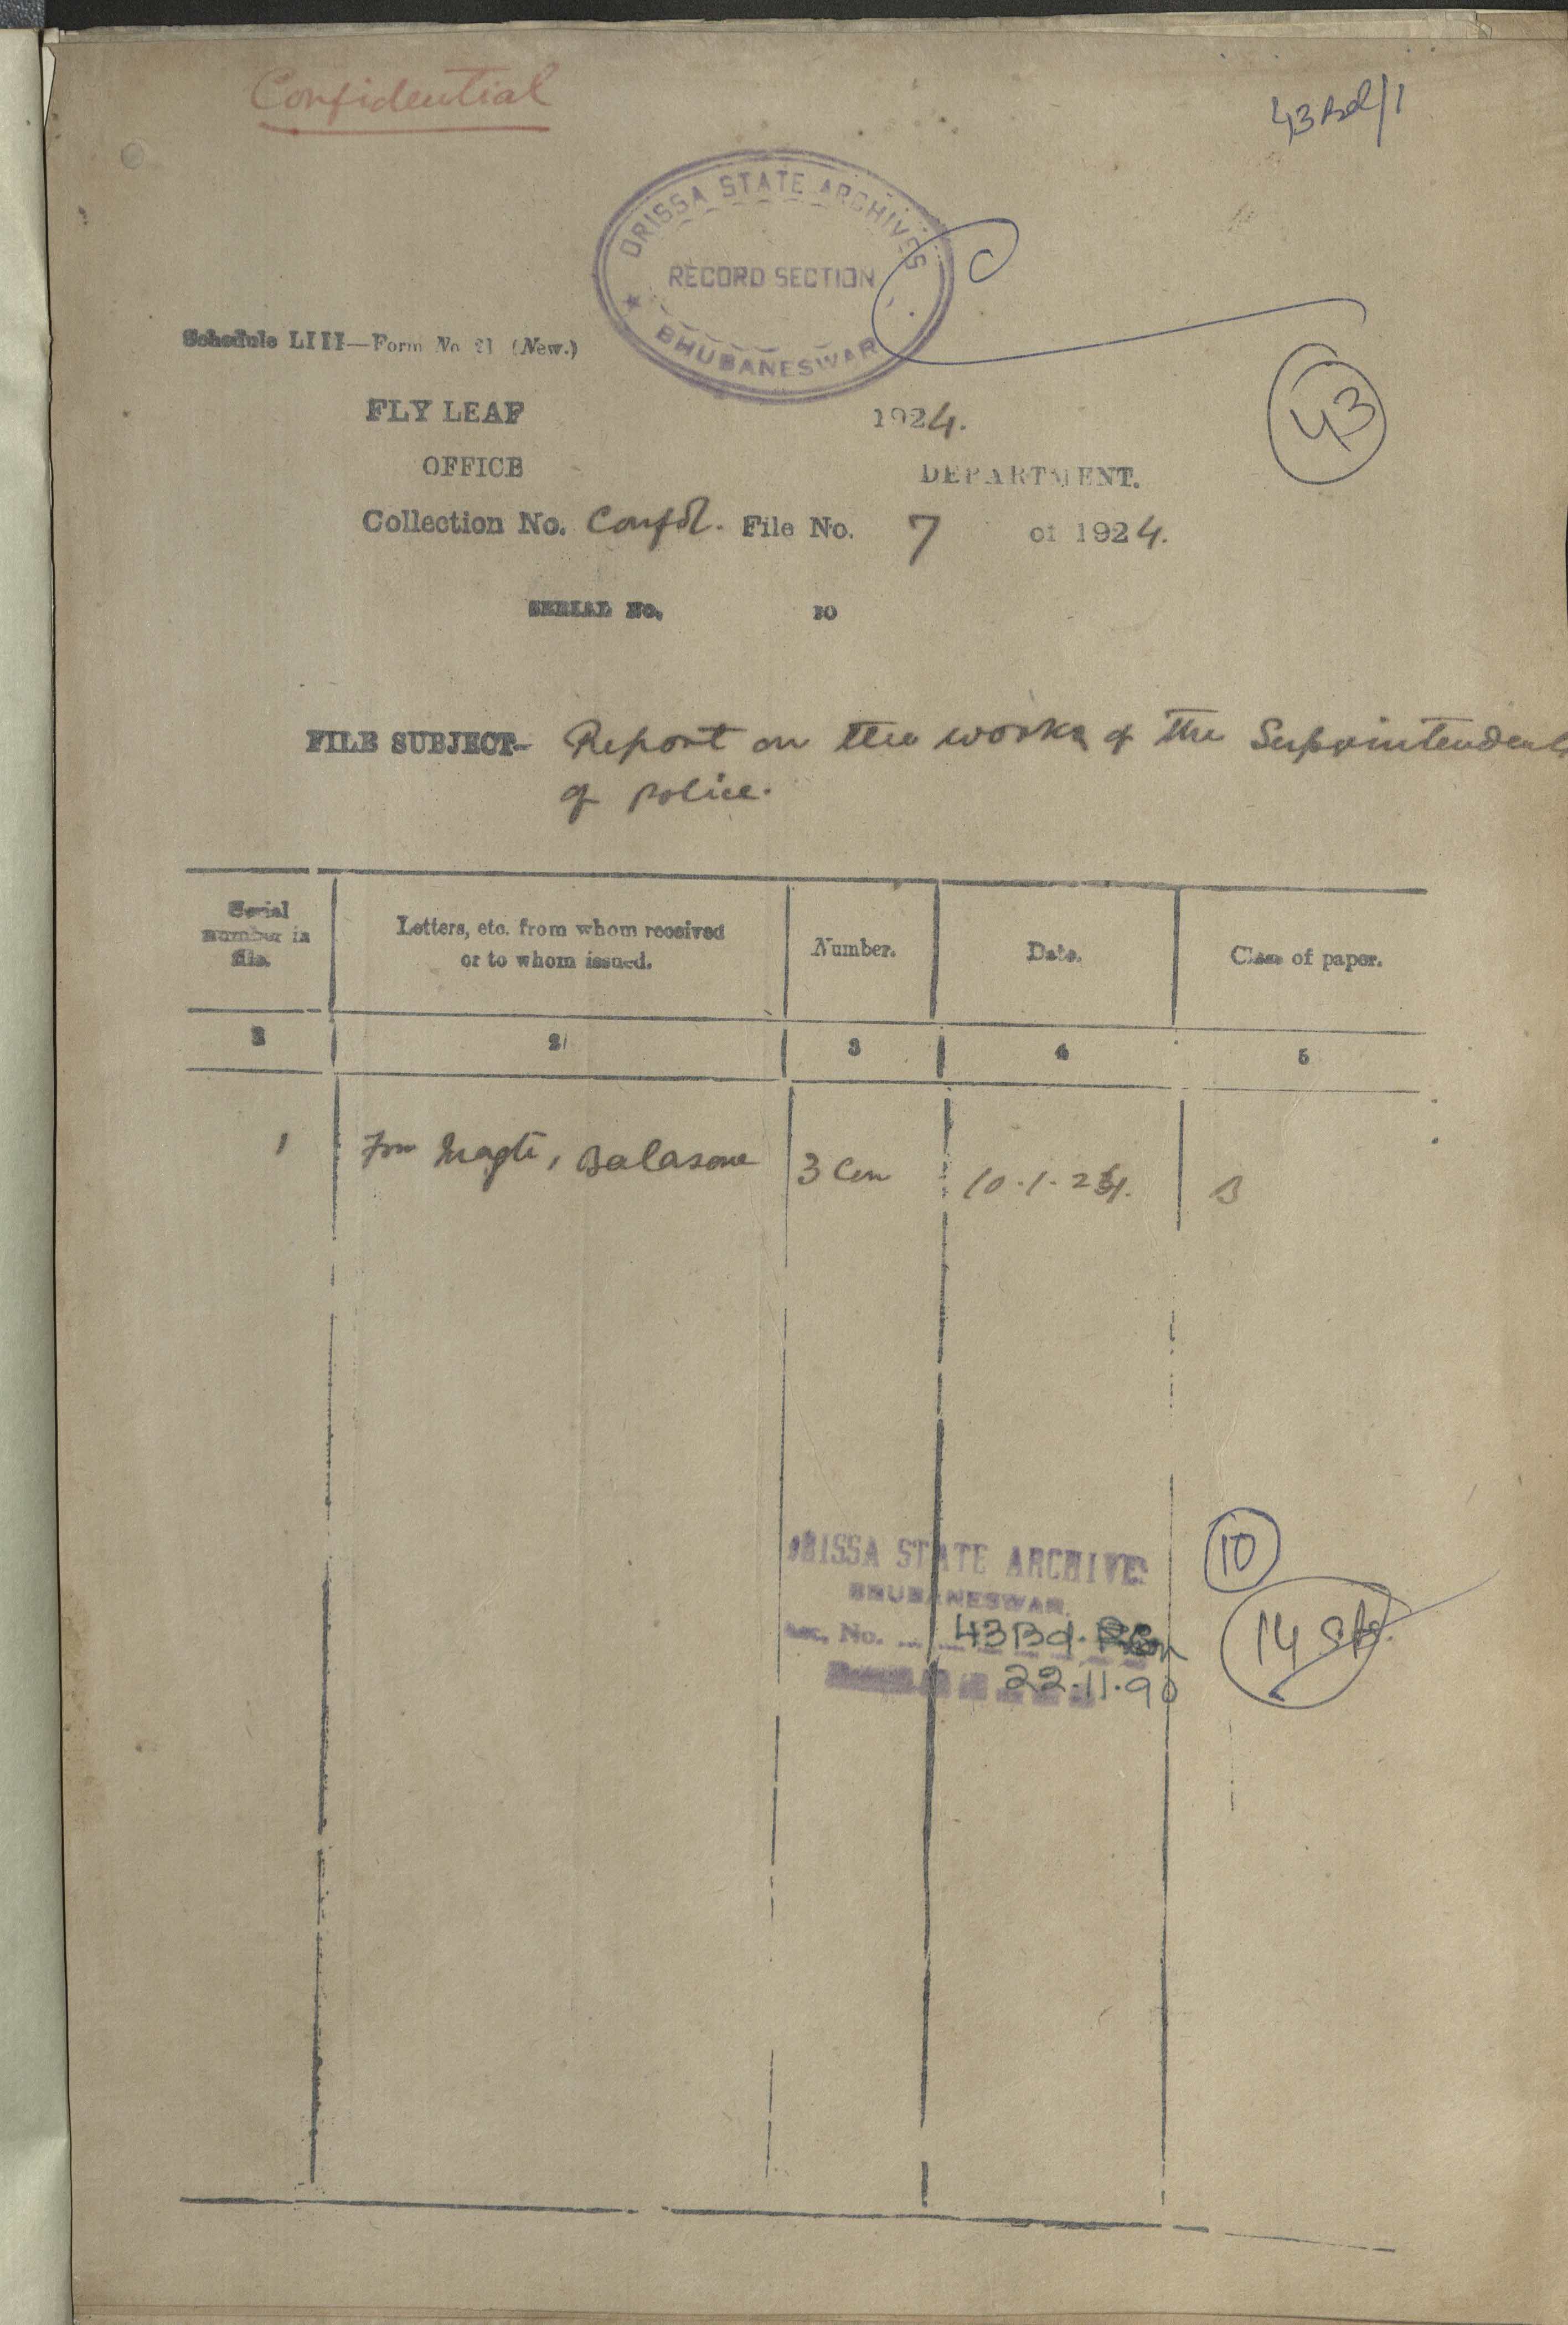 Confidential
43 Bd/1
ORISSA STATE ARCHIVES
RECORD SECTION
BHUBANESWAR
C
Schedule LIII—Form No 21 (New.)
43
FLY LEAF 1924.
OFFICE DEPARTMENT.
Collection No. Confdl. File No. 7 of 1924.
SERIAL No. TO
FILE SUBJECT- Report on the works of the Superintendent
of police.
Serial number in file.
Letters, etc. from whom received or to whom issued.
Number.
Date.
Class of paper.
2 3 4 5
1 From Magte, Balasore 3 Con 10.1.24. B
ORISSA STATE ARCHIVES
10
BHUBANESWAR.
Acc, No. 43 Bd.
14
22.11.90